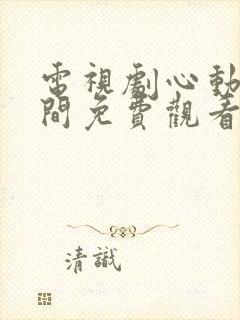 電視劇心動
間免費觀看
清識